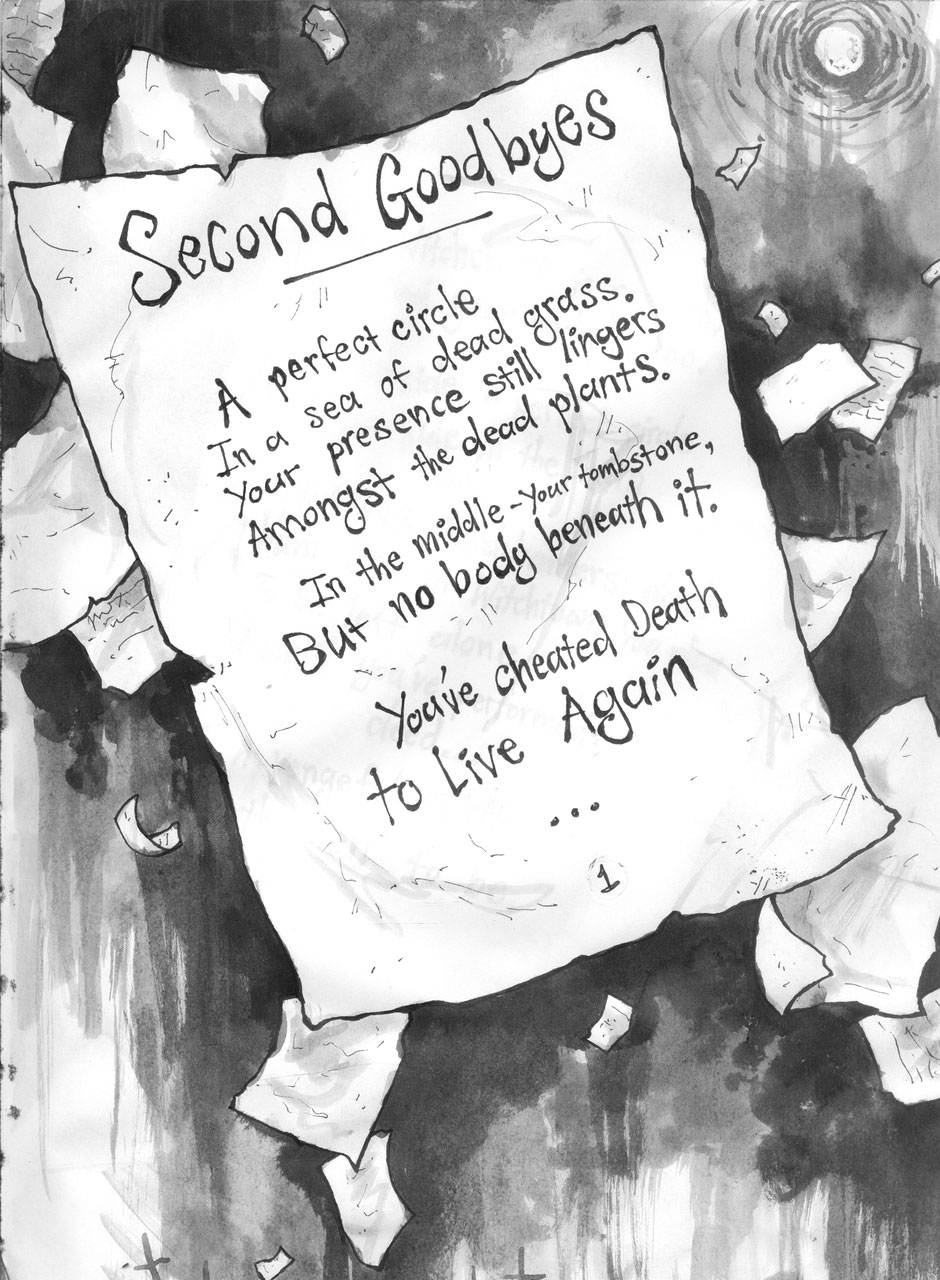 Second Goodbyes
A perfect circle
In a sea of dead grass.
Your presence still lingers
Amongst the dead plants.
In the middle - your tombstone,
But no body beneath it.
You've cheated Death
to Live Again
...
1